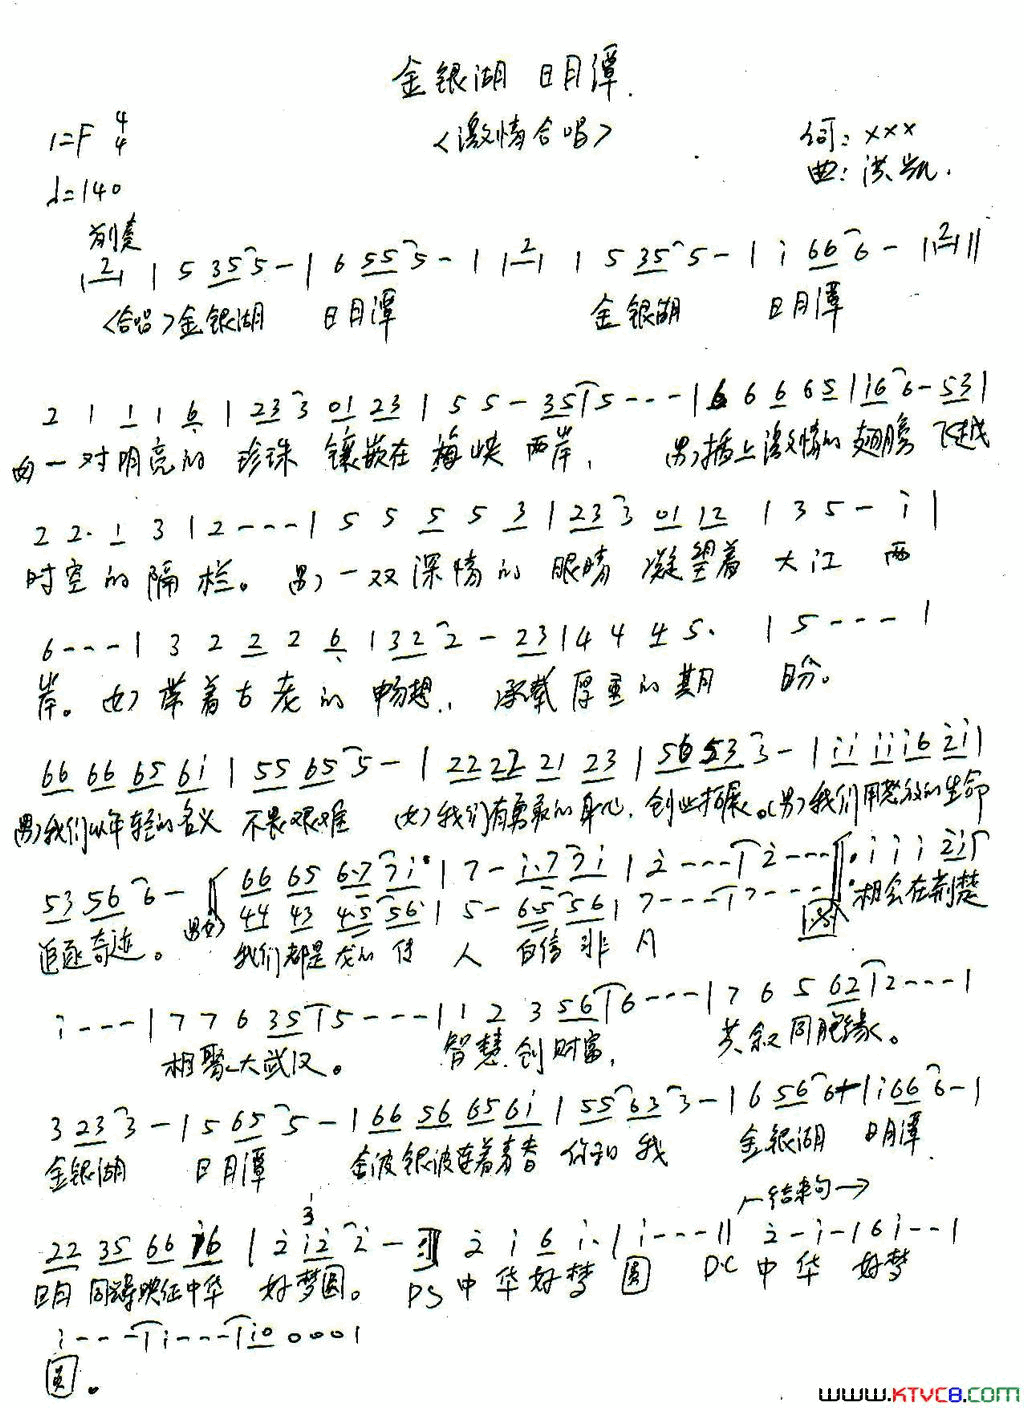 金银湖 日月潭
〈激情合唱〉
1=F 4/4
词: ×××
♩=140
曲: 洪凯.
前奏
|2| | 5 35 5 - | 6 55 5 - | |2| | 5 35 5 - | i 66 6 - |2||
〈合唱〉金银湖 日月潭 金银湖 日月潭
2 1 1 1 6 | 23 3 01 23 | 5 5 - 35 | 5 - - - | 6 6 6 6 5 | i6 6 - 53 |
一对明亮的 珍珠 镶嵌在 两岸, 男)插上激情的翅膀 飞越
2 2. 1 3 | 2 - - - | 5 5 5 5 3 | 23 3 01 12 | 3 5 - i |
时空的隔栏。男)一双深情的 眼睛 凝望着 大江 两
6 - - - | 3 2 2 2 6 | 32 2 - 23 | 4 4 4 5. | 5 - - - |
岸。女)带着古老的 畅想, 承载厚重的期 盼。
66 66 65 6i | 55 65 5 - | 22 22 21 23 | 56 53 3 - | ii ii i6 2i |
男)我们以年轻的名义 不畏艰难 女)我们有勇敢的身心, 创业拓展。(男)我们用 的生命
53 56 6 - 66 65 6·7 7i | 7 - i·7 7i | 2 - - - | 2 - - - i i i 2i
44 43 45 56 | 5 - 6·5 56 | 7 - - - | 7 - - -
追逐奇迹。男女) 我们都是龙的传 人 自信非凡 相会在荆楚
i - - - | 7 7 6 35 | 5 - - - | 1 2 3 56 | 6 - - - | 7 6 5 62 | 2 - - - |
相聚大武汉。 智慧创财富, 共叙同胞缘。
3 23 3 - | 5 65 5 - | 66 56 65 6i | 55 63 3 - | 6 56 6 - | i 66 6 - |
金银湖 日月潭 金波银波连着青春 你和我 金银湖 日月潭
⊢结束句→
22 35 66 i6 | 2 i2 2 - 2 i 6 i. | i - - - || 2 - i - | 6 i - - |
日月同 映征中华 好梦圆。 DS 中华好梦 圆 DC 中华 好梦
i - - - | i - - - | i0 0 0 0 |
圆。
www.KTVC8.com